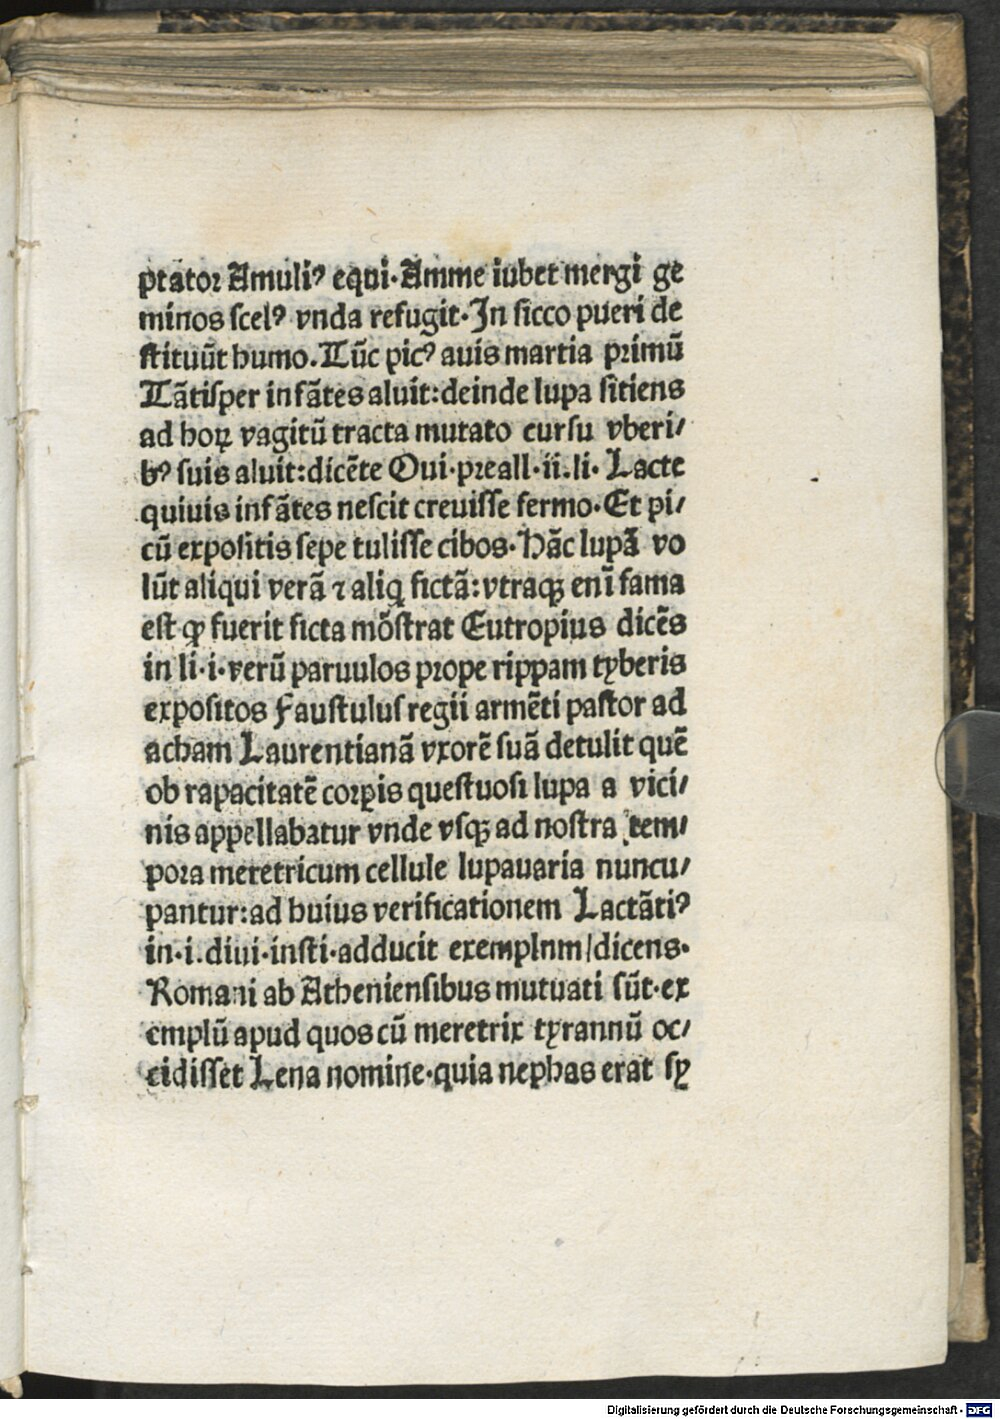 ptator Amuliꝰ equi. Amme iubet mergi ge
minos scelꝰ vnda refugit. In sicco pueri de
stituūt humo. Tūc picꝰ auis martia primū
Tātisper infātes aluit: deinde lupa sitiens
ad hoꝝ vagitū tracta mutato cursu vberi/
bꝰ suis aluit: dicēte Oui. preall. ii. li. Lacte
quiuis infātes nescit creuisse fermo. Et pi/
cū expositis sepe tulisse cibos. Hāc lupā vo
lūt aliqui verā ⁊ aliq̨ fictā: vtraqꝫ enī fama
est ꝙ fuerit ficta mōstrat Eutropius dicēs
in li. i. verū paruulos prope rippam tyberis
expositos Faustulus regii armēti pastor ad
acham Laurentianā vxorē suā detulit quē
ob rapacitatē corꝑis questuosi lupa a vici/
nis appellabatur vnde vsqꝫ ad nostra tem/
pora meretricum cellule lupauaria nuncu/
pantur: ad huius verificationem Lactātiꝰ
in. i. diui. insti. adducit exemplnm/dicens.
Romani ab Atheniensibus mutuati sūt. ex
emplū apud quos cū meretrix tyrannū oc/
cidisset Lena nomine. quia nephas erat sy
Digitalisierung gefördert durch die Deutsche Forschungsgemeinschaft - DFG